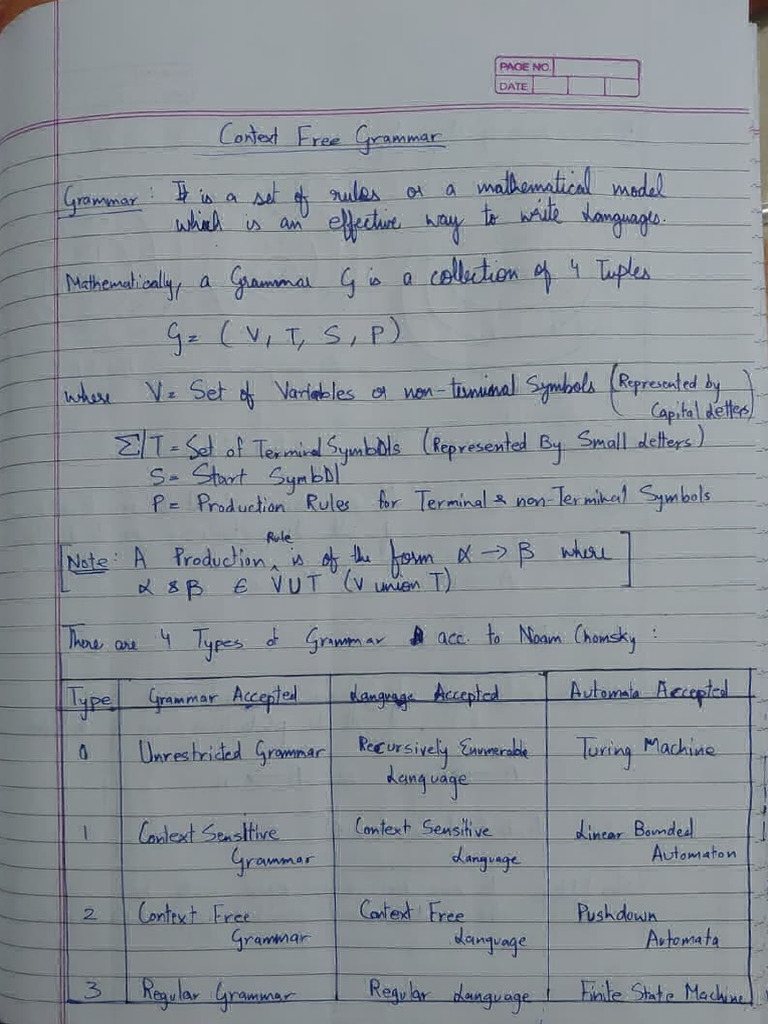 PAGE NO.
DATE
Context Free Grammar
Grammar : It is a set of rules or a mathematical model
which is an effective way to write Languages.
Mathematically, a Grammar G is a collection of 4 Tuples
G = ( V, T, S, P )
where V = Set of Variables or non-terminal Symbols (Represented by
Capital Letters)
Σ/T = Set of Terminal Symbols (Represented By Small Letters)
S = Start Symbol
P = Production Rules for Terminal & non-Terminal Symbols
[Note: A Production Rule is of the form α → β where
α & β ∈ V U T (V union T)]
There are 4 Types of Grammar acc. to Noam Chomsky :
Type Grammar Accepted Language Accepted Automata Accepted
0 Unrestricted Grammar Recursively Enumerable Turing Machine
Language
1 Context Sensitive Context Sensitive Linear Bounded
Grammar Language Automaton
2 Context Free Context Free Pushdown
Grammar Language Automata
3 Regular Grammar Regular Language Finite State Machine